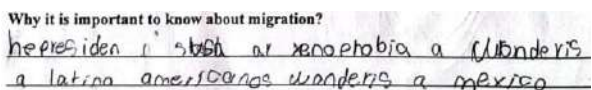 Why it is important to know about migration?
hepresiden stosh ar xenophobia a
a latino americanos wonderis a mexico